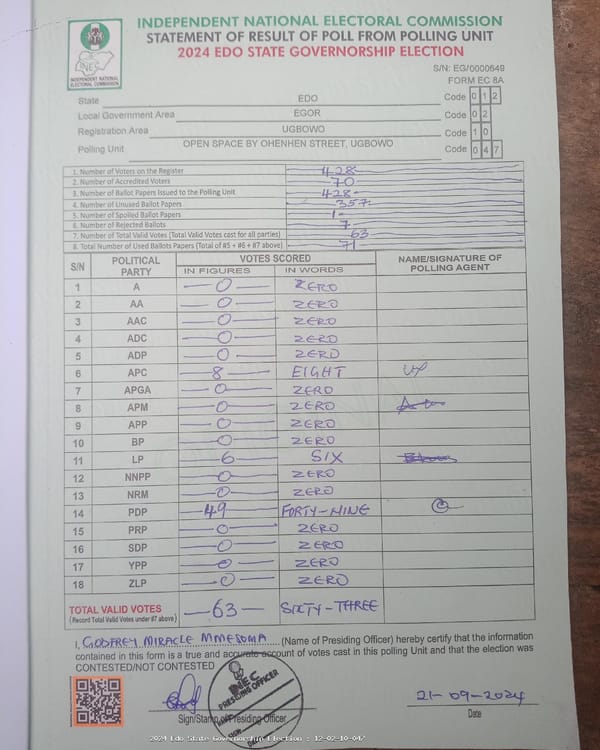 INDEPENDENT NATIONAL ELECTORAL COMMISSION
STATEMENT OF RESULT OF POLL FROM POLLING UNIT
2024 EDO STATE GOVERNORSHIP ELECTION
INEC
INDEPENDENT NATIONAL ELECTORAL COMMISSION
S/N: EG/0000649
FORM EC 8A
State EDO Code 0 1 2
Local Government Area EGOR Code 0 2
Registration Area UGBOWO Code 1 0
Polling Unit OPEN SPACE BY OHENHEN STREET, UGBOWO Code 0 4 7
1. Number of Voters on the Register 428
2. Number of Accredited Voters 70
3. Number of Ballot Papers Issued to the Polling Unit 428
4. Number of Unused Ballot Papers 357
5. Number of Spoiled Ballot Papers 1
6. Number of Rejected Ballots 7
7. Number of Total Valid Votes (Total Valid Votes cast for all parties) 63
8. Total Number of Used Ballots Papers (Total of #5 + #6 + #7 above) 71
S/N POLITICAL PARTY VOTES SCORED NAME/SIGNATURE OF POLLING AGENT
IN FIGURES IN WORDS
1 A 0 ZERO
2 AA 0 ZERO
3 AAC 0 ZERO
4 ADC 0 ZERO
5 ADP 0 ZERO
6 APC 8 EIGHT
7 APGA 0 ZERO
8 APM 0 ZERO
9 APP 0 ZERO
10 BP 0 ZERO
11 LP 6 SIX
12 NNPP 0 ZERO
13 NRM 0 ZERO
14 PDP 49 FORTY-NINE
15 PRP 0 ZERO
16 SDP 0 ZERO
17 YPP 0 ZERO
18 ZLP 0 ZERO
TOTAL VALID VOTES 63 SIXTY-THREE
(Record Total Valid Votes under #7 above)
I, GODFREY MIRACLE MMESOMA (Name of Presiding Officer) hereby certify that the information
contained in this form is a true and accurate account of votes cast in this polling Unit and that the election was
CONTESTED/NOT CONTESTED
INEC
PRESIDING OFFICER
21-09-2024
Sign/Stamp of Presiding Officer Date
2024 Edo State Governorship Election : 12-02-10-047